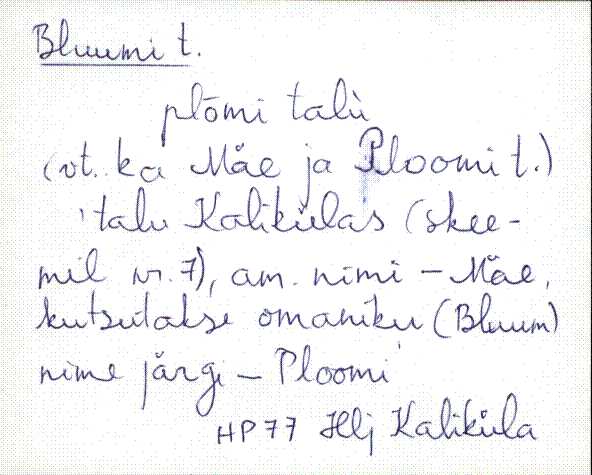 Bluumi t.
plōmi talù
(vt. ka Mäe ja Ploomi t.)
'talu Kalikülas (skee-
mil nr. 7), am. nimi – Mäe,
kutsutakse omaniku (Bluum)
nime järgi – Ploomi
HP77 Hlj Kaliküla